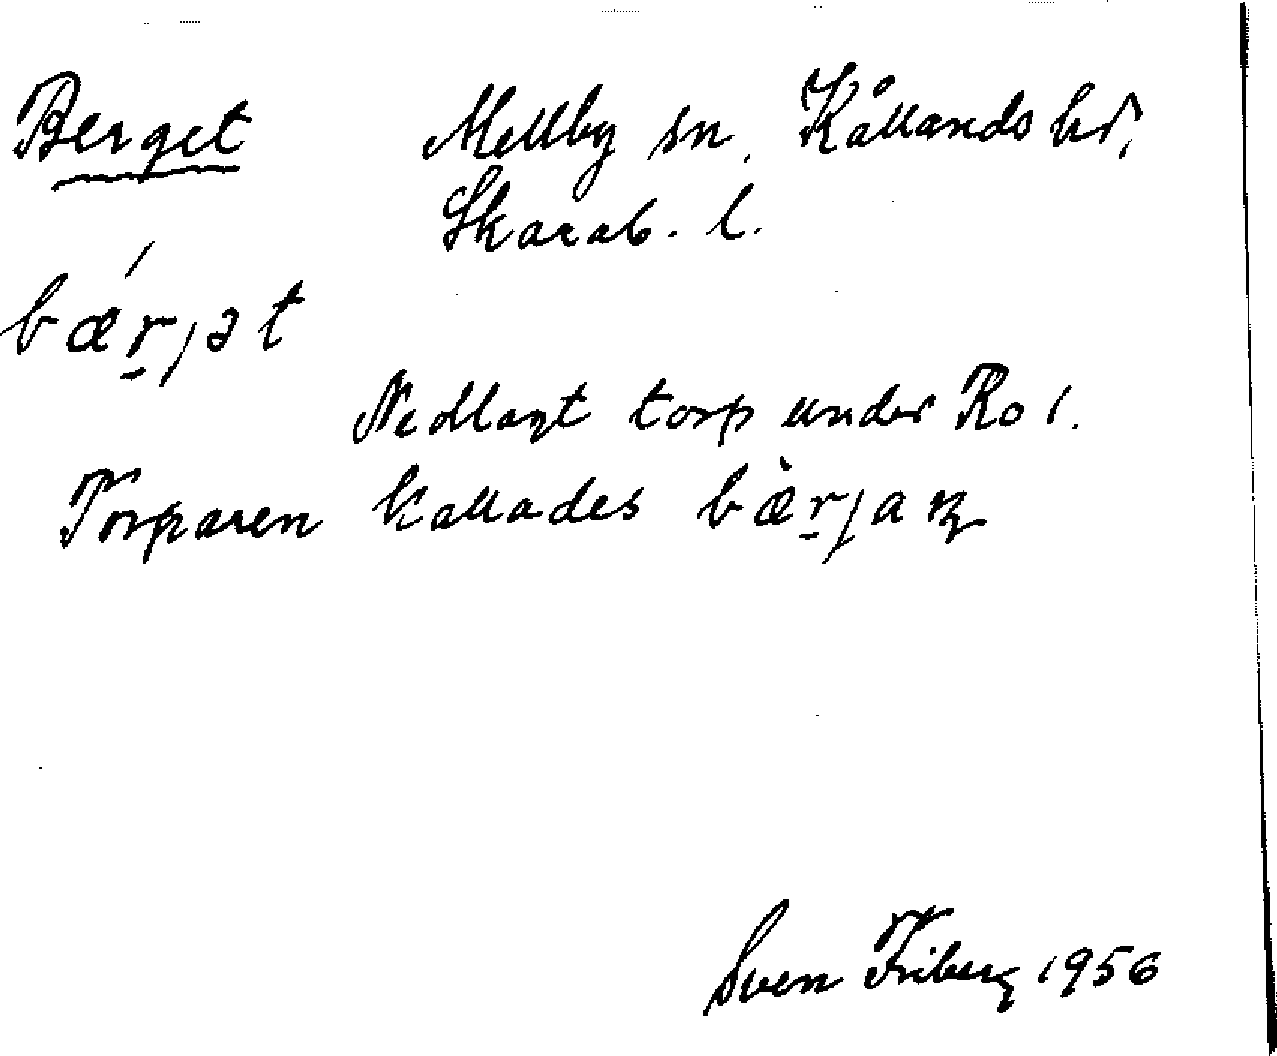 Berget Mellby sn. Kållands hd,
Skarab. l.
bǽr̠jət
Nedlagt torp under Ro 1.
Torparen kallades bæ̀r̠jaɴ
Sven Friberg 1956